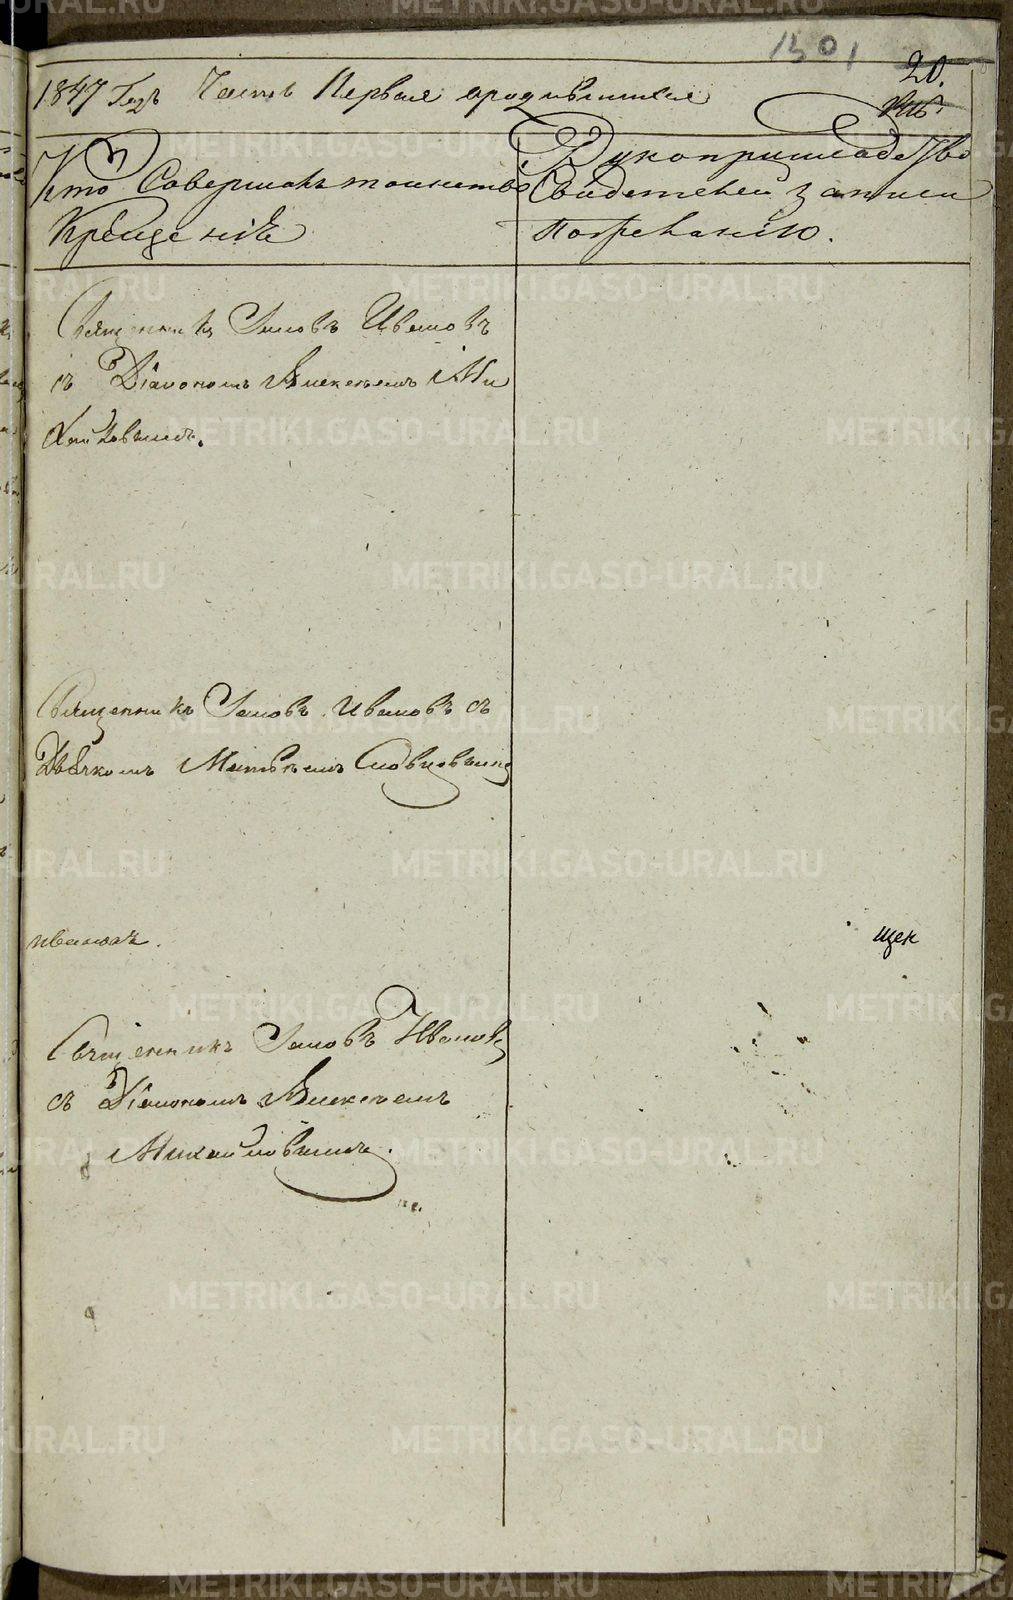 1301
20.
1847 Годъ Часть Первая ородившихся
Кто Совершалъ таинство
Крещенія
Рукоприкладство
Свидетелей записи
По требованію.
Священникъ Іаковъ Ивановъ
съ Діакономъ Алексѣемъ Ми
хайловымъ.
Священникъ Іаковъ Ивановъ съ
Дьячкомъ Матвѣемъ Словцовымъ
ивановъ.
щек
Священникъ Іаковъ Ивановъ
съ Діакономъ Алексѣемъ
Михайловымъ.
METRIKI.GASO-URAL.RU